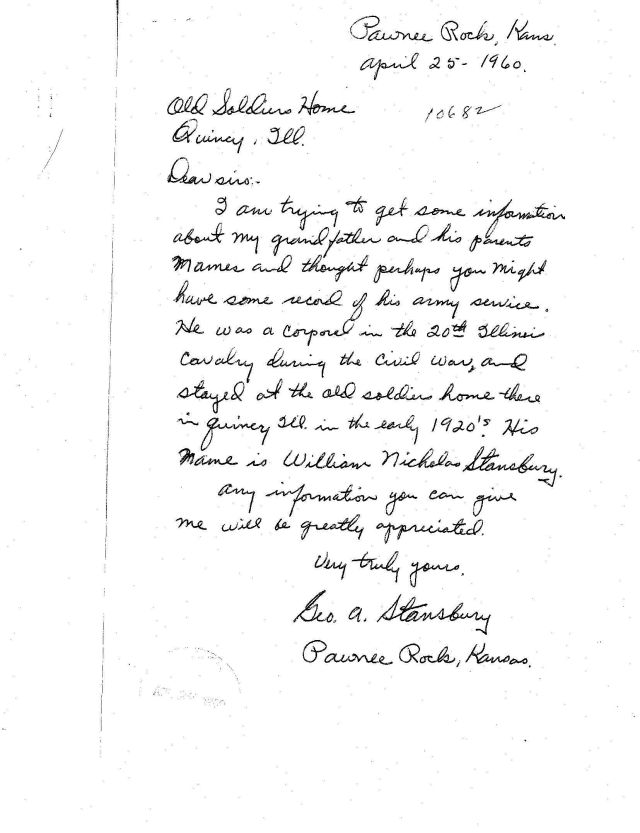 Pawnee Rock, Kans.
April 25 - 1960.
Old Soldiers Home
10682
Quincy, Ill.
Dear sirs:-
I am trying to get some information
about my grandfather and his parents
names and thought perhaps you might
have some record of his army service.
He was a corporel in the 20th Illinois
Cavalry during the Civil War, and
stayed at the old soldiers home there
in quincy Ill. in the early 1920's. His
name is William Nicholas Stansbury.
any information you can give
me will be greatly appreciated.
Very truly yours,
Geo. A. Stansbury
Pawnee Rock, Kansas.